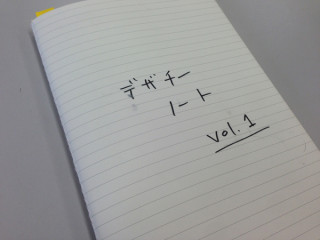 デザチー
ノート
vol.1